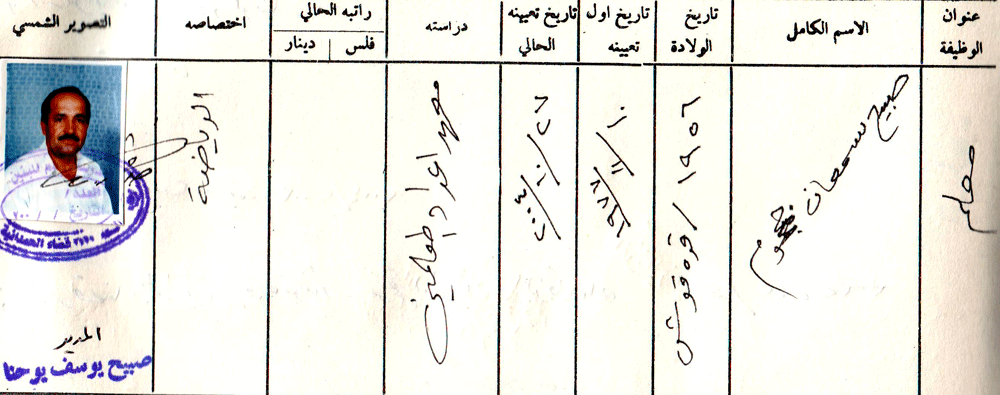 عنوان الوظيفة
الاسم الكامل
تاريخ الولادة
تاريخ اول تعيينه
تاريخ تعيينه الحالي
دراسته
راتبه الحالي
فلس
دينار
اختصاصه
التصوير الشمسي
معلم
صبيح سمعان
١٩٥٦ / قره قوش
معهد اعداد المعلمين
الرياضة
قضاء الحمدانية
المدير
صبيح يوسف يوحنا